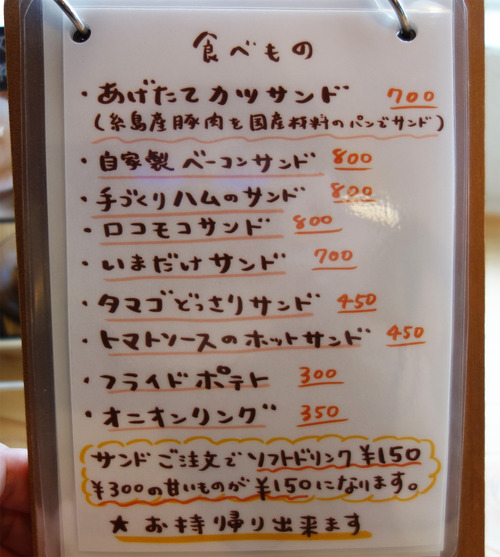 食べもの
・あげたてカツサンド 700
(糸島産豚肉を国産材料のパンでサンド)
・自家製ベーコンサンド 800
・手づくりハムのサンド 800
・ロコモコサンド 800
・いまだけサンド 700
・タマゴどっさりサンド 450
・トマトソースのホットサンド 450
・フライドポテト 300
・オニオンリング 350
サンドご注文でソフトドリンク¥150
¥300の甘いものが¥150になります。
★お持ち帰り出来ます